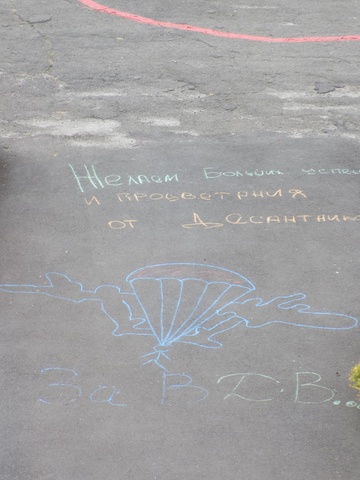 Желаем Больших успех
и процветания
от Десантник
За ВДВ...